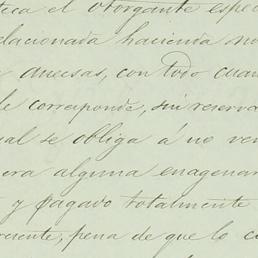 teca el otorgante espec
elacionada hacienda no
y anecsas, con todo cuan
le corresponde, sin reserva
ual se obliga á no ven
era alguna enagenar
y pagado totalmente
resente, pena de que lo c